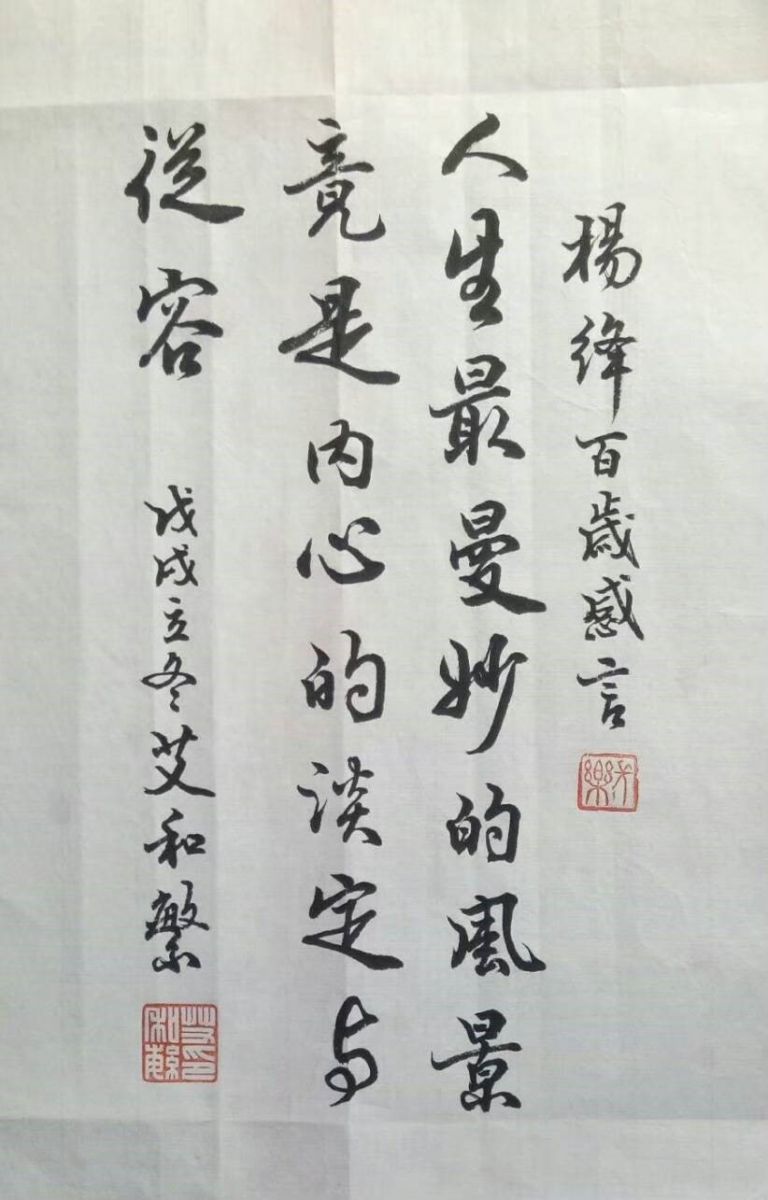 楊絳百歲感言
人生最曼妙的風景
竟是内心的淡定与
從容
戊戌立冬艾和繁